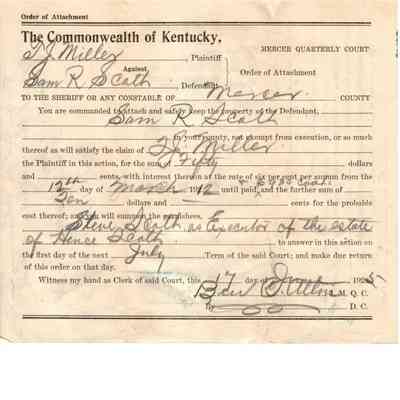 Order of Attachment
The Commonwealth of Kentucky,
T. J. Miller, Plaintiff MERCER QUARTERLY COURT
Against, Order of Attachment
Sam R Scott, Defendant
TO THE SHERIFF OR ANY CONSTABLE OF Mercer COUNTY
You are commanded to attach and safely keep the property of the Defendant,
Sam R Scott
in your county, not exempt from execution, or so much
thereof as will satisfy the claim of T. J. Miller
the Plaintiff in this action, for the sum of Fifty dollars
and cents, with interest thereon at the rate of six per cent per annum from the
12th day of March 1912 until paid, and the further sum of
Ten dollars and cents for the probable
cost thereof; and you will summon the garnishees,
Steve Scott as Executor of the estate
of Scott to answer in this action on
the first day of the next July Term of the said Court; and make due return
of this order on that day.
Witness my hand as Clerk of said Court, this 17 day of June 1925
Ben J. M. Q. C.
By D. C.